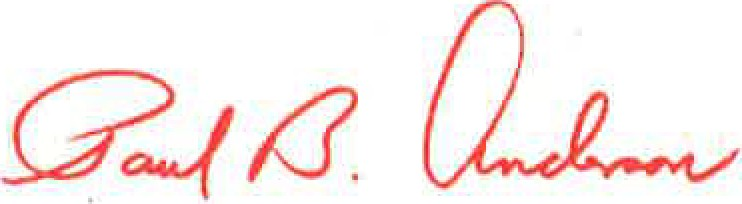 Paul B. Anderson